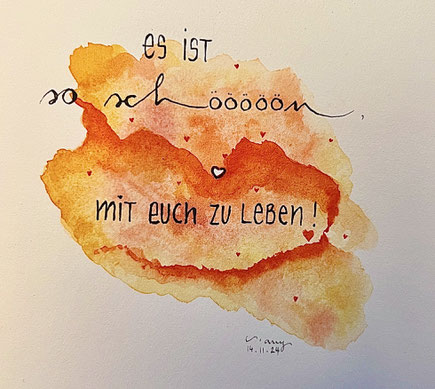 es ist
so schööööön,
mit euch zu leben!
14.11.24